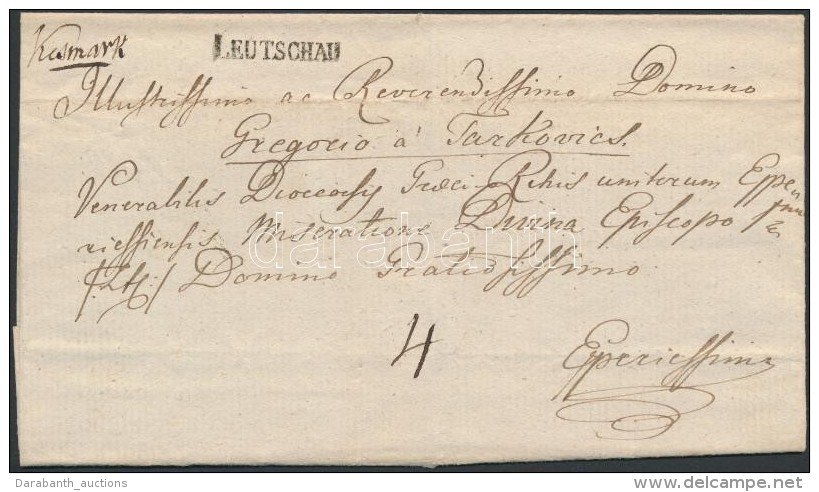 Kesmark
LEUTSCHAU
Illustrissimo ac Reverendissimo Domino
Gregorio à Tarkovics.
Venerabilis Dioecesis Graeci Ritus unitorum Eper
iessiensis Miseratione Divina Episcopo
Domino Gratiosissimo
4
Eperiessini
darabanth
Darabanth_auctions
delcampe.net